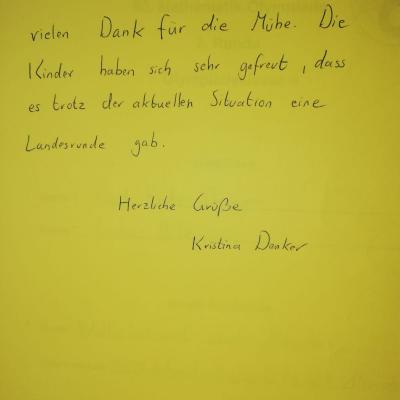 vielen Dank für die Mühe. Die
Kinder haben sich sehr gefreut, dass
es trotz der aktuellen Situation eine
Landesrunde gab.
Herzliche Grüße
Kristina Danker